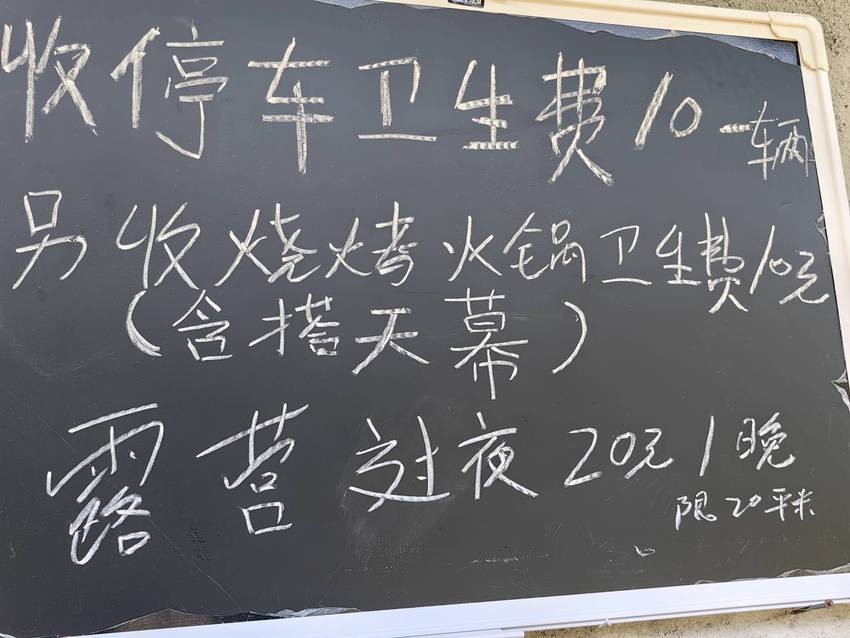 收停车卫生费10一辆
另收烧烤火锅卫生费10元
(含搭天幕)
露营过夜20元/晚
限20平米